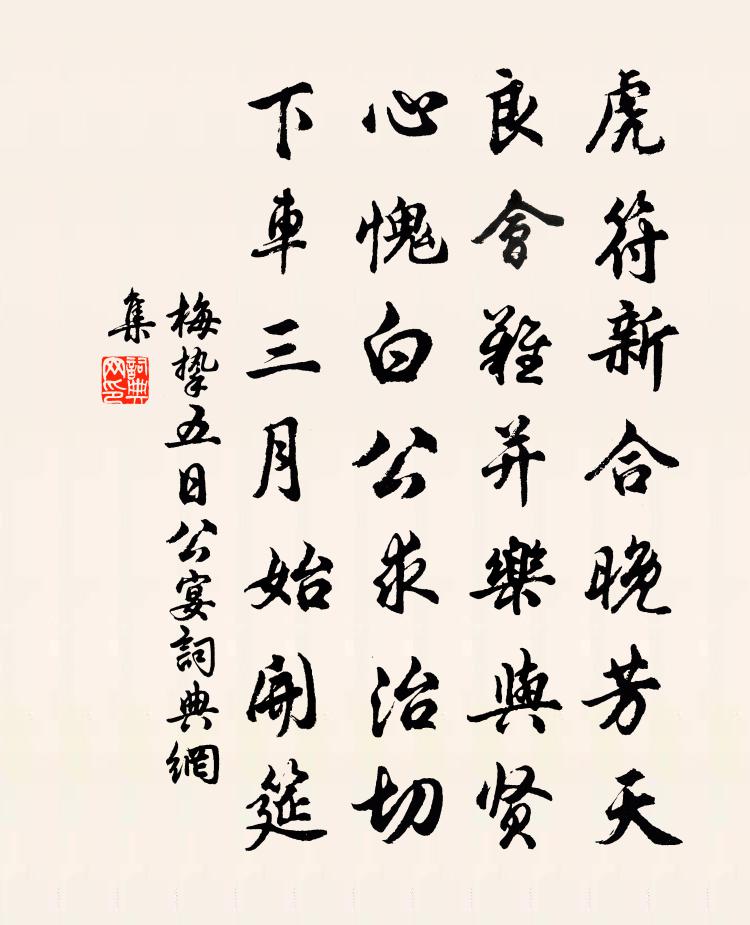 虎符新合晚芳天
良會難并樂與贤
心愧白公求治切
下車三月始開筵
梅摯五日公宴詞典網
集
詞典
网印